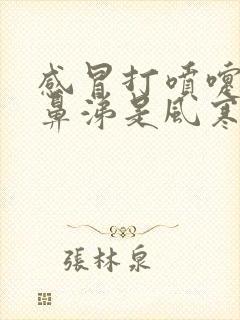 感冒打噴嚏
鼻涕是風寒
張林泉